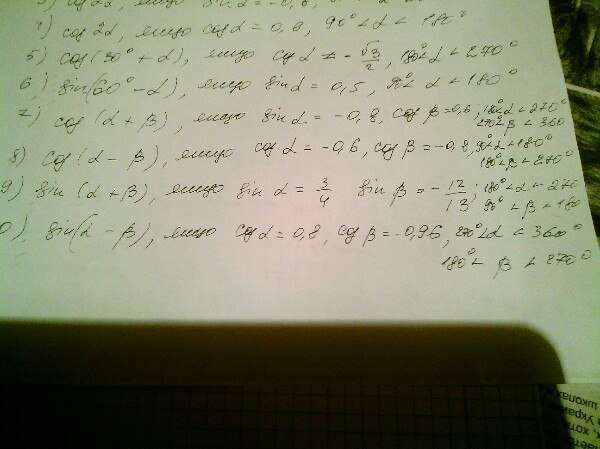 cos 2α, якщо cos α = 0,6, 90° < α < 180°
5) cos(30° + α), якщо cos α = -√3/2, 180° < α < 270°
6) sin(60° - α), якщо sin α = 0,5, 90° < α < 180°
7) cos(α + β), якщо sin α = -0,8, cos β = 0,6, 180° < α < 270°
270° < β < 360
8) cos(α - β), якщо cos α = -0,6, cos β = -0,8, 90° < α < 180°
180° < β < 270°
9) sin(α + β), якщо sin α = 3/4 sin β = -12/13, 180° < α < 270
90° < β < 180
0) sin(α - β), якщо cos α = 0,8, cos β = -0,96, 270° < α < 360°
180° < β < 270°
школах
Украї